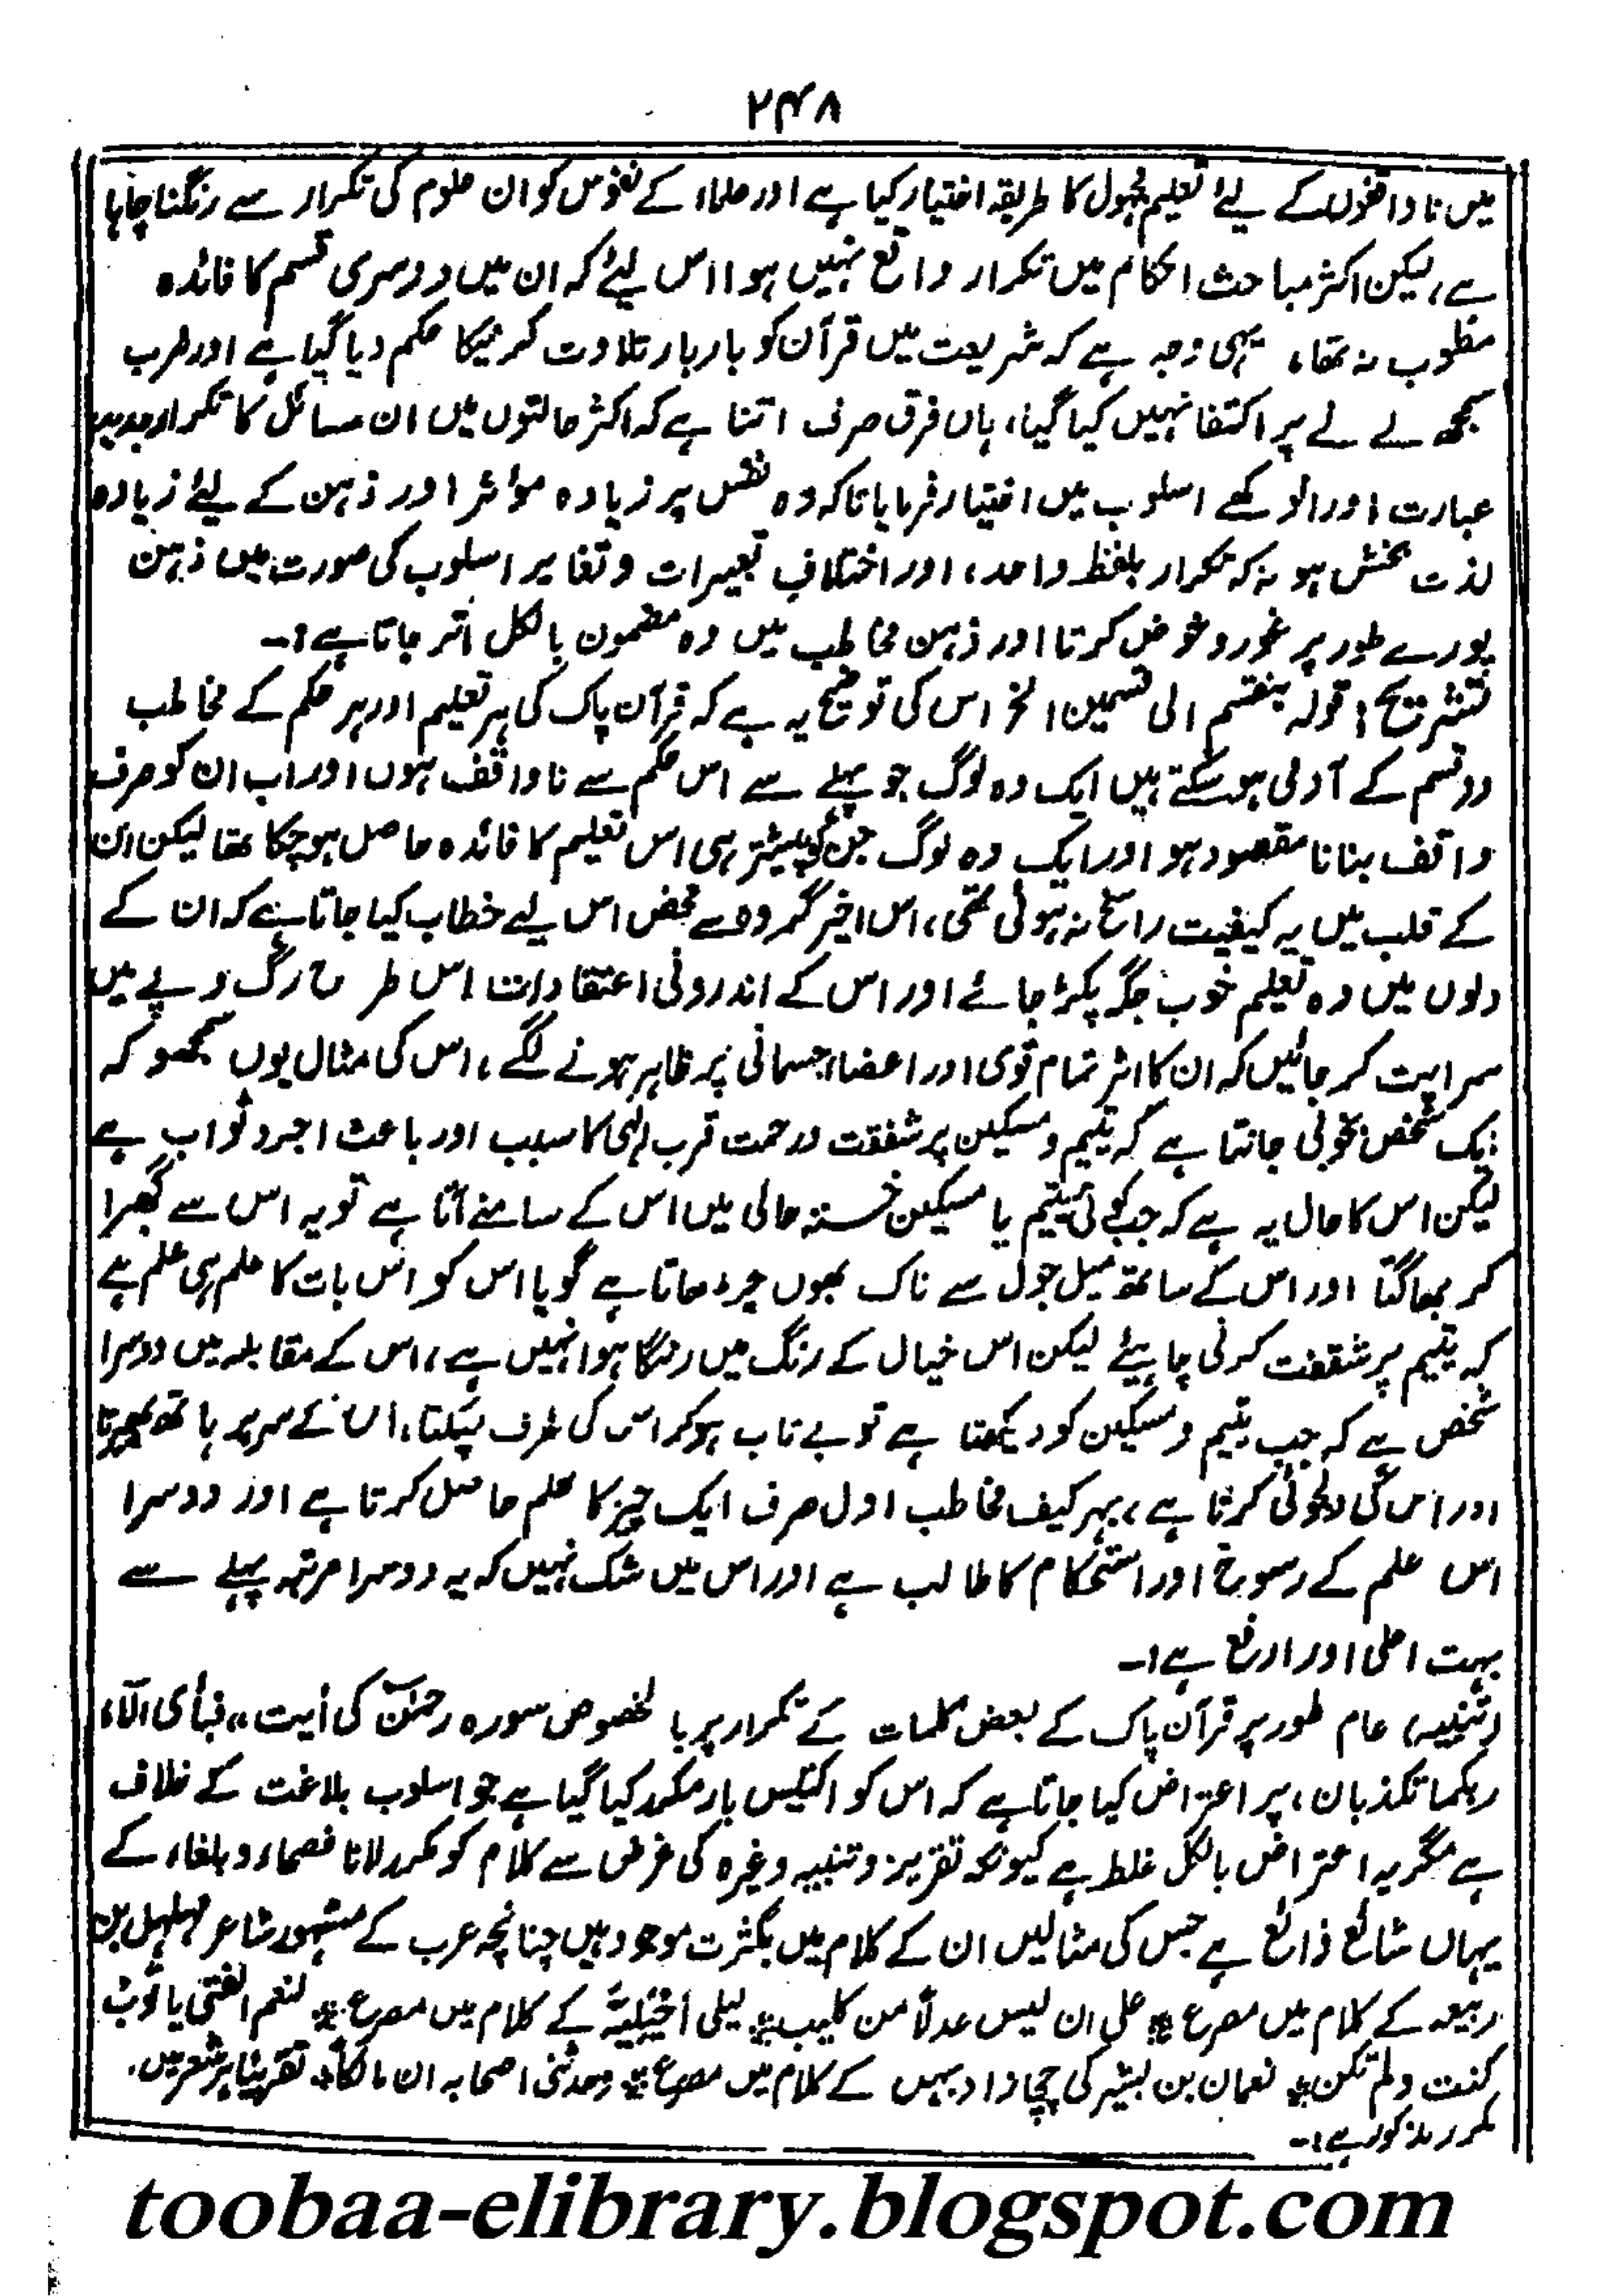 ۲۴۸
میں ناواقفوں کے لیے تعلیم مجہول کا طریقہ اختیار کیا ہے اور علماء کے نفوس کو ان علوم کی تکرار سے رنگنا چاہا
ہے، لیکن اکثر مباحث احکام میں تکرار واقع نہیں ہوا اس لیئے کہ ان میں دوسری قسم کا فائدہ
مطلوب نہ تھا، یہی وجہ ہے کہ شریعت میں قرآن کو بار بار تلاوت کرنیکا حکم دیا گیا ہے اور صرف
سمجھ لے لے پر اکتفا نہیں کیا گیا، ہاں فرق صرف اتنا ہے کہ اکثر حالتوں میں ان مسائل کا تکرار جدید
عبارت اور انوکھے اسلوب میں اختیار فرمایا تاکہ وہ نفس پر زیادہ مؤثر اور ذہن کے لیئے زیادہ
لذت بخش ہو نہ کہ تکرار بلفظ واحد، اور اختلاف تعبیرات و تغایر اسلوب کی صورت میں ذہن
پورے طور پر غور و خوض کرتا اور ذہن مخاطب میں وہ مضمون بالکل اتر جاتا ہے:۔
تشریح: قولہ ینقسم الی قسمین الخ اس کی توضیح یہ ہے کہ قرآن پاک کی ہر تعلیم اور ہر حکم کے مخاطب
دو قسم کے آدمی ہو سکتے ہیں ایک وہ لوگ جو پہلے سے اس حکم سے ناواقف ہوں اور اب ان کو صرف
واقف بنانا مقصود ہو اور ایک وہ لوگ جن کو پیشتر ہی اس تعلیم کا فائدہ حاصل ہو چکا تھا لیکن ان
کے قلب میں یہ کیفیت راسخ نہ ہوئی تھی، اس اخیر گروہ سے محض اس لیے خطاب کیا جاتا ہے کہ ان کے
دلوں میں وہ تعلیم خوب جگہ پکڑ جائے اور اس کے اندرونی اعتقادات اس طرح رگ و پے میں
سرایت کر جائیں کہ ان کا اثر تمام قوی اور اعضاء جسمانی پر ظاہر ہونے لگے، اس کی مثال یوں سمجھو کہ
ایک شخص بخوبی جانتا ہے کہ یتیم و مسکین پر شفقت و رحمت قرب الٰہی کا سبب اور باعث اجر و ثواب ہے
لیکن اس کا حال یہ ہے کہ جب کوئی یتیم یا مسکین خستہ حالی میں اس کے سامنے آتا ہے تو یہ اس سے گھبرا
کر بھاگتا اور اس کے ساتھ میل جول سے ناک بھوں چڑھاتا ہے گویا اس کو اس بات کا علم ہی علم ہے
کہ یتیم پر شفقت کرنی چاہیئے لیکن اس خیال کے رنگ میں رنگا ہوا نہیں ہے، اس کے مقابلہ میں دوسرا
شخص ہے کہ جب یتیم و مسکین کو دیکھتا ہے تو بے تاب ہو کر اس کی طرف لپکتا، اس کے سر پر ہاتھ پھیرتا
اور اس کی دلجوئی کرتا ہے، بہر کیف مخاطب اول صرف ایک چیز کا علم حاصل کرتا ہے اور دوسرا
اس علم کے رسوخ اور استحکام کا طالب ہے اور اس میں شک نہیں کہ یہ دوسرا مرتبہ پہلے سے
بہت اعلی اور ارفع ہے:۔
(تنبیہ) عام طور پر قرآن پاک کے بعض کلمات کے تکرار پر بالخصوص سورہ رحمٰن کی آیت ،، فبأی آلاء
ربکما تکذبان، پر اعتراض کیا جاتا ہے کہ اس کو اکتیس بار مکرر کیا گیا ہے جو اسلوب بلاغت کے خلاف
ہے مگر یہ اعتراض بالکل غلط ہے کیونکہ تقریر و تنبیہ وغیرہ کی غرض سے کلام کو مکرر لانا فصحاء و بلغاء کے
یہاں شائع ذائع ہے جس کی مثالیں ان کے کلام میں بکثرت موجود ہیں چنانچہ عرب کے مشہور شاعر مہلہل بن
ربیعہ کے کلام میں مصرع ؎ علی ان لیس عدلاً من کلیب ؎ لیلی اخیلیہ کے کلام میں مصرع ؎ لنعم الفتی یا توب
کنت ولم تکن ؎ نعمان بن بشیر کی چچازاد بہن کے کلام میں مصرع ؎ وحدثنی اصحابہ ان مالکاً ؎ تقریباً ہر شعر میں
مکرر مذکور ہے:۔
toobaa-elibrary.blogspot.com